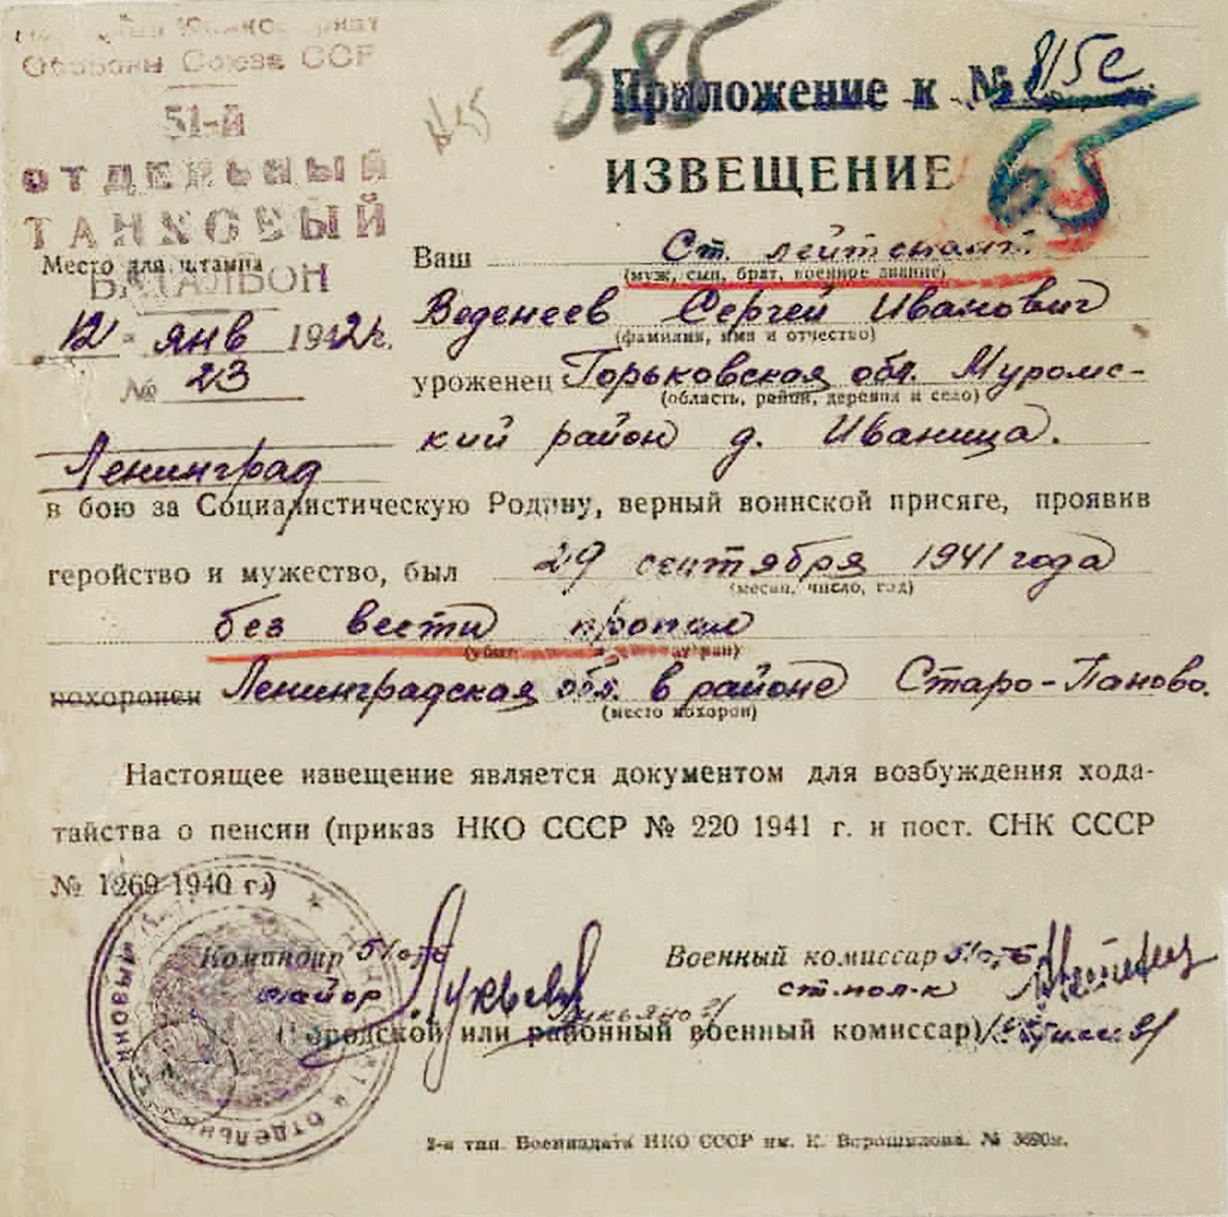 Обороны Союза ССР
385
Приложение к № 815с
51-й
ОТДЕЛЬНЫЙ
ТАНКОВЫЙ
БАТАЛЬОН
Место для штампа
12 - янв 1942г.
№ 23
Ленинград
ИЗВЕЩЕНИЕ
65
Ваш Ст. лейтенант
(муж, сын, брат, военное звание)
Веденеев Сергей Иванович
(фамилия, имя и отчество)
уроженец Горьковская обл. Муромс-
(область, район, деревня и село)
кий район д. Иваница.
в бою за Социалистическую Родину, верный воинской присяге, проявив
геройство и мужество, был 29 сентября 1941 года
(месяц, число, год)
без вести пропал
похоронен Ленинградская обл. в районе Старо-Паново.
(место похорон)
Настоящее извещение является документом для возбуждения хода-
тайства о пенсии (приказ НКО СССР № 220 1941 г. и пост. СНК СССР
№ 1269 1940 г.)
Командир 51 отб Военный комиссар 51 отб
майор ст.пол-к
(Городской или районный военный комиссар)
2-я тип. Воениздата НКО СССР им. К. Ворошилова. №